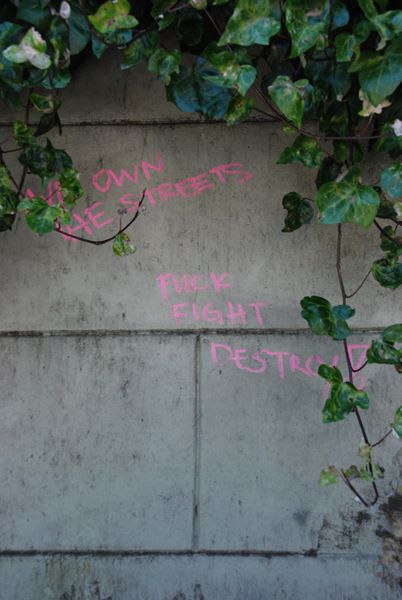 WE OWN
THE STREETS
FUCK
FIGHT
DESTROY!